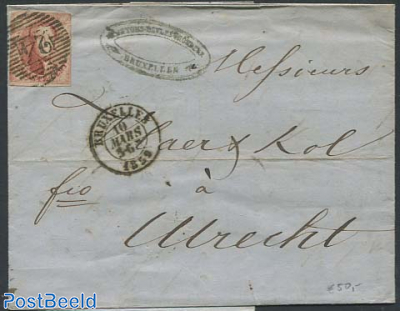 24
BRUXELLES
Messieurs
BRUXELLES
10
MARS
1859
Vlaer & Kol
fco
à
Utrecht
€50,-
PostBeeld